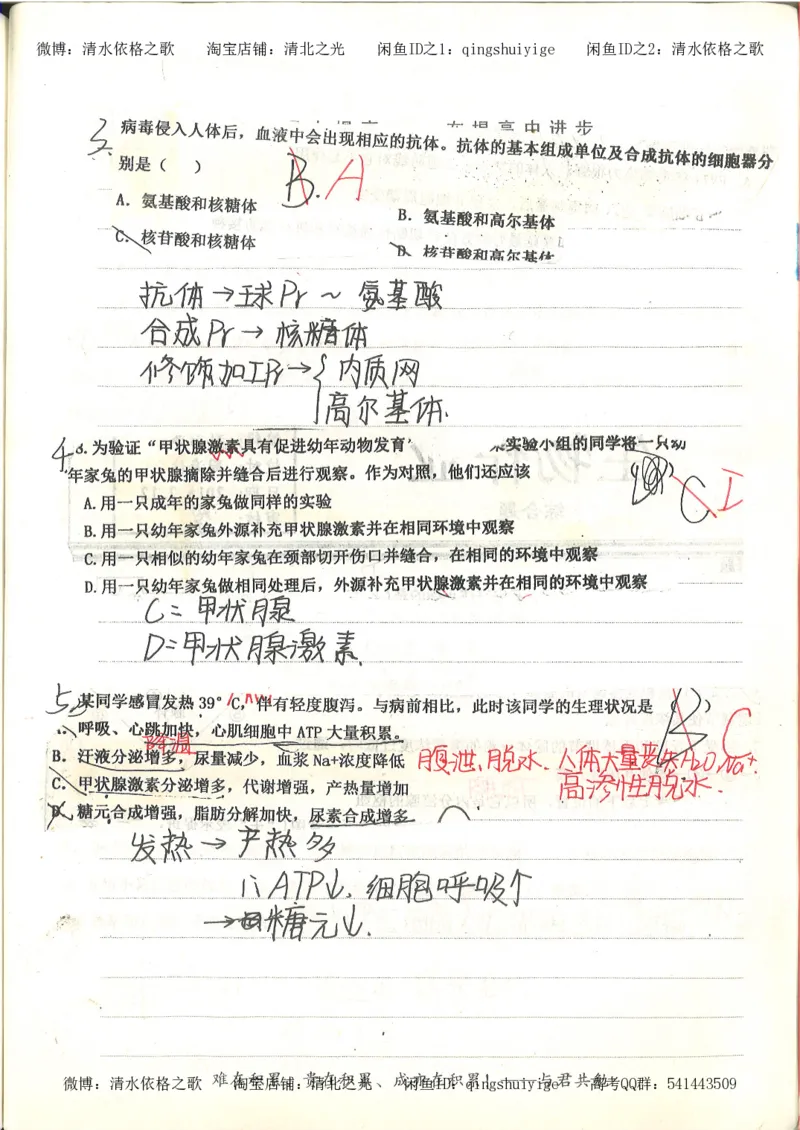 微博：清水依格之歌 淘宝店铺：清北之光 闲鱼ID之1：qingshuiyige 闲鱼ID之2：清水依格之歌
在提高中进步
3. 病毒侵入人体后，血液中会出现相应的抗体。抗体的基本组成单位及合成抗体的细胞器分
别是（ ） B. A
A．氨基酸和核糖体
B．氨基酸和高尔基体
C．核苷酸和核糖体
D．核苷酸和高尔基体
抗体→球Pr ~ 氨基酸
合成Pr→核糖体
修饰加工Pr→{内质网
高尔基体.
4 6.为验证“甲状腺激素具有促进幼年动物发育” 某实验小组的同学将一只幼
年家兔的甲状腺摘除并缝合后进行观察。作为对照，他们还应该
C
A.用一只成年的家兔做同样的实验
B.用一只幼年家兔外源补充甲状腺激素并在相同环境中观察
C.用一只相似的幼年家兔在颈部切开伤口并缝合，在相同的环境中观察
D.用一只幼年家兔做相同处理后，外源补充甲状腺激素并在相同的环境中观察
C=甲状腺
D=甲状腺激素.
5. 某同学感冒发热 39°C，伴有轻度腹泻。与病前相比，此时该同学的生理状况是 ( ) A C
呼吸、心跳加快，心肌细胞中 ATP 大量积累。
降温
B．汗液分泌增多，尿量减少，血浆 Na+浓度降低 腹泄、脱水、人体大量丧失H2O、Na+.
高渗性脱水.
C．甲状腺激素分泌增多，代谢增强，产热量增加
D．糖元合成增强，脂肪分解加快，尿素合成增多
发热→产热多
ATP↓. 细胞呼吸个
→糖元↓.
难在积累、贵在积累、成亦在积累！ 与君共勉
微博：清水依格之歌 淘宝店铺：清北之光 闲鱼ID：qingshuiyige 高考QQ群：541443509